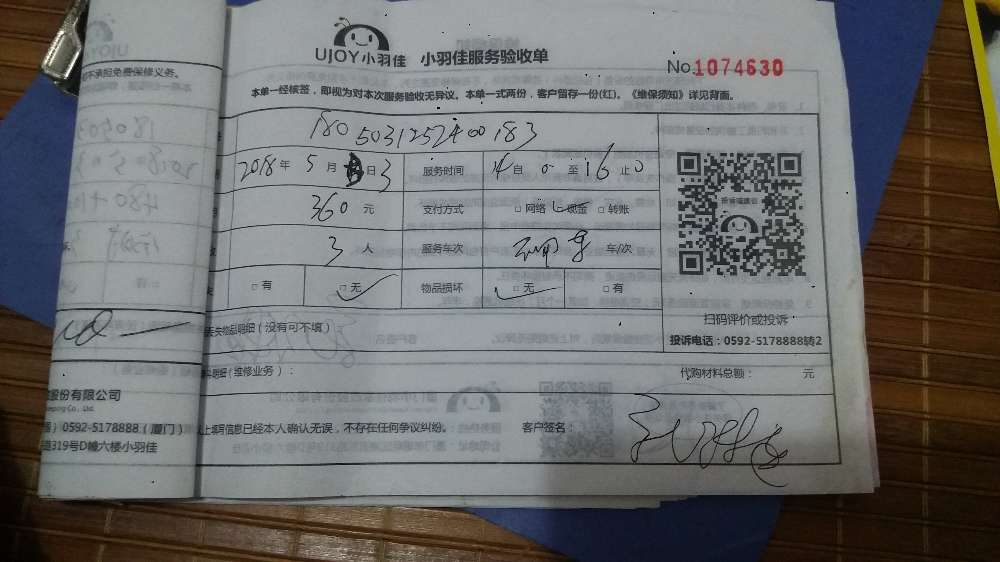 UJOY小羽佳 小羽佳服务验收单
No.1074630
本单一经核签，即视为对本次服务验收无异议。本单一式两份，客户留存一份(红)。《维保须知》详见背面。
不承担免费保修义务。
180 5031252400183
2018年5月3日 服务时间 14自0至16止0
360元 支付方式 □网络 □现金 □转账
3人 服务车次 车/次
□有 □无 物品损坏 □无 □有
丢失物品明细（没有可不填）
扫码评价或投诉
投诉电话：0592-5178888转2
明细（维修业务）：
代购材料总额： 元
股份有限公司
0592-5178888（厦门）
319号D幢六楼小羽佳
上填写信息已经本人确认无误，不存在任何争议纠纷。 客户签名：